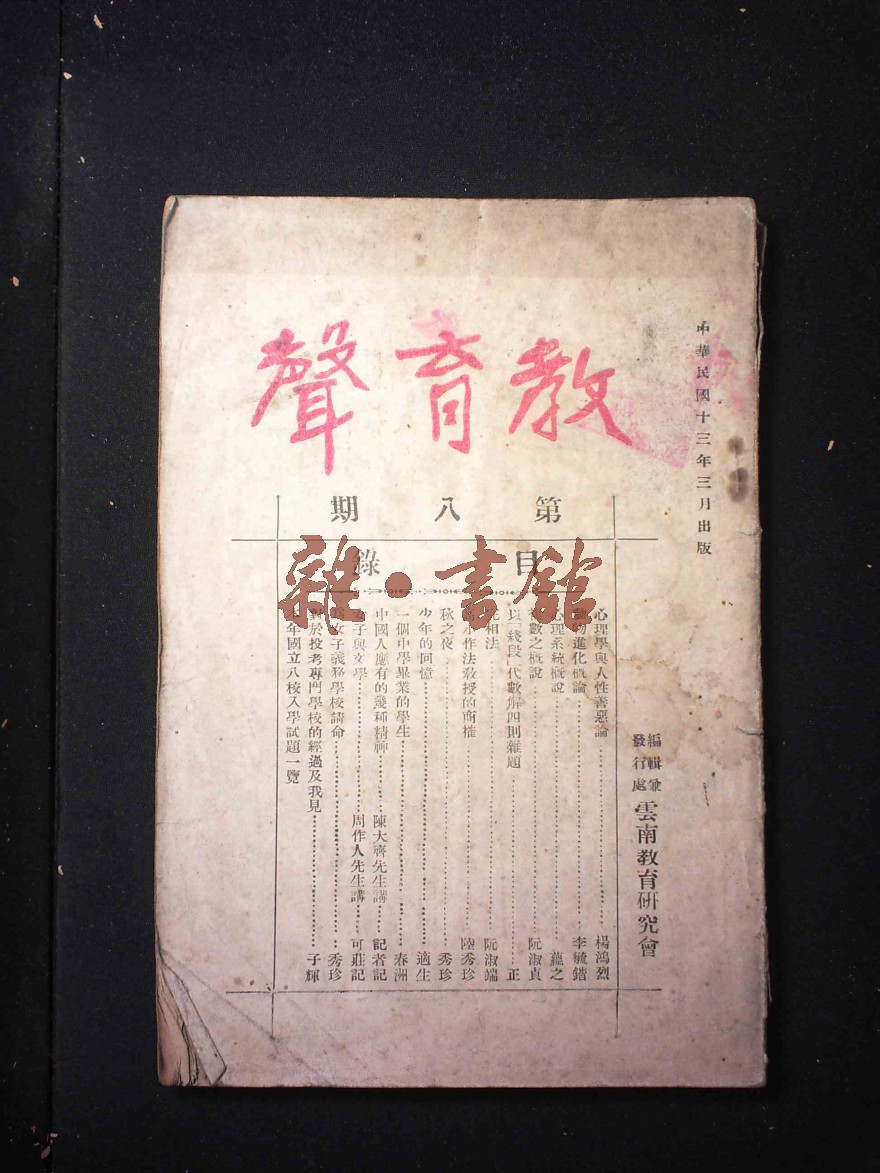 中華民國十三年三月出版
教育聲
第八期
目錄
編輯兼
發行處
雲南教育研究會
心理學與人性善惡論 楊鴻烈
動物進化概論 李毓鍇
心理系統概說 蘊之
數之概說 阮淑貞
以「綫段」代數解四則雜題 正
相法 阮淑端
作法敎授的商搉 陸秀珍
秋之夜 秀珍
少年的回憶 適生
一個中學畢業的學生 春洲
中國人應有的幾種精神 陳大齊先生講 記者記
女子與文學 周作人先生講 可莊記
女子義務學校請命 秀珍
對於投考專門學校的經過及我見 子輝
年國立八校入學試題一覽
雜·書館